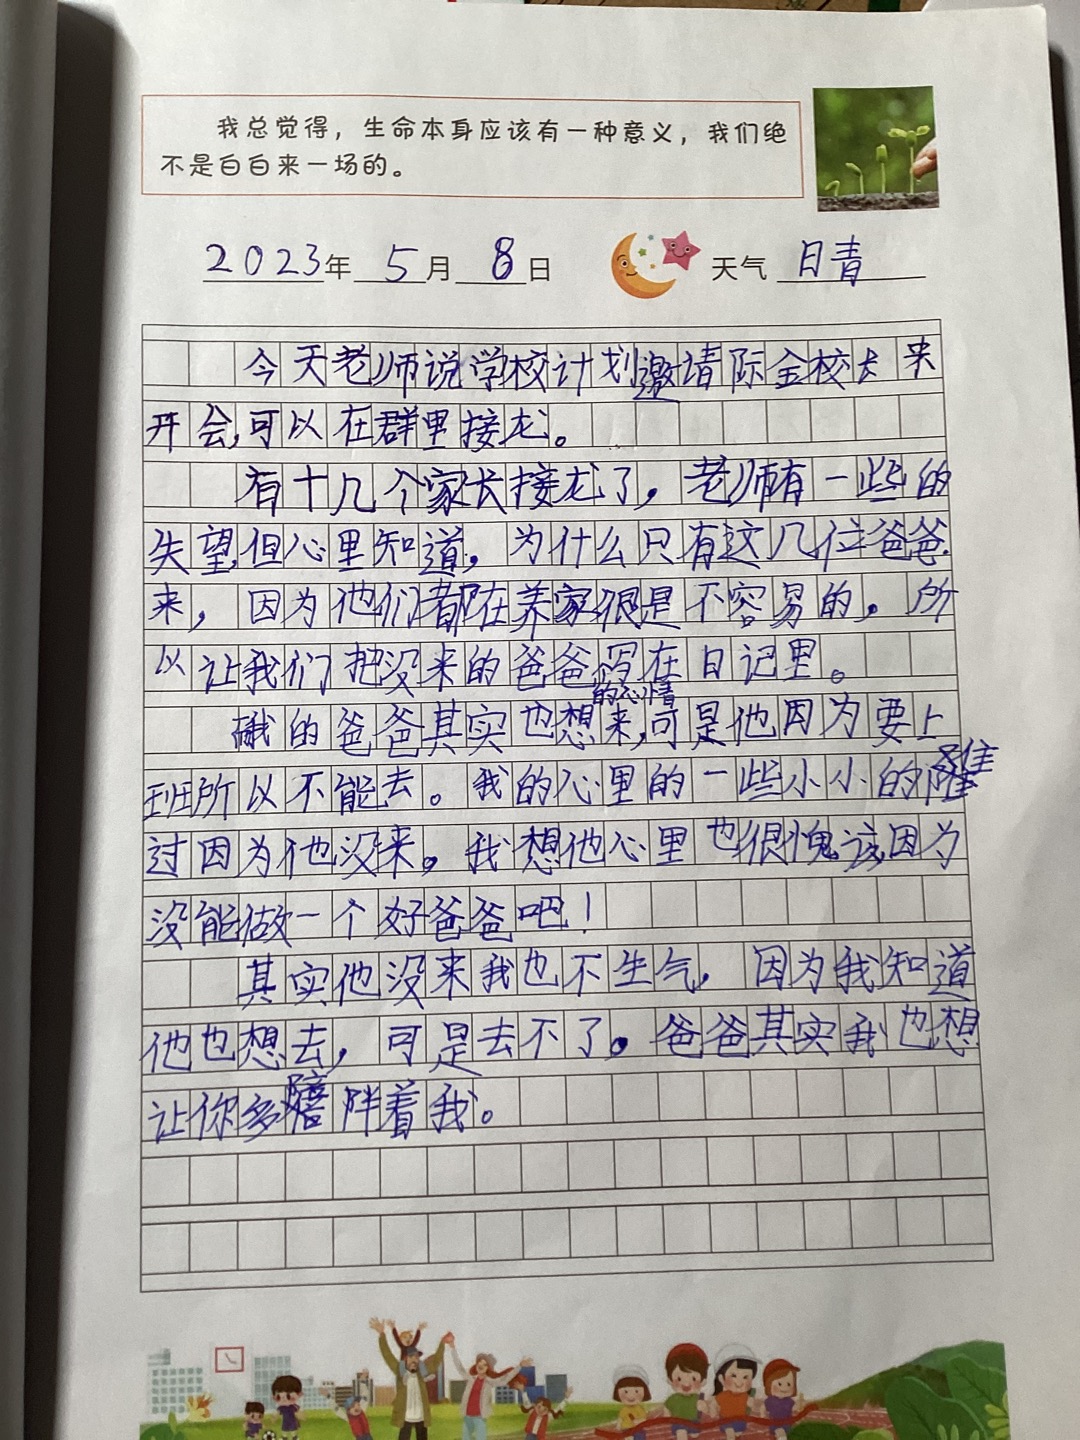 我总觉得，生命本身应该有一种意义，我们绝
不是白白来一场的。
2023年 5月 8日 天气 日青
今天老师说学校计划邀请际金校长来
开会,可以在群里接龙。
有十几个家长接龙了，老师有一些的
失望,但心里知道，为什么只有这几位爸爸
来，因为他们都在养家很是不容易的。所
以让我们把没来的爸爸写在日记里。
的心情
我的爸爸其实也想来,可是他因为要上
班所以不能去。我的心里的一些小小的难
过因为他没来。我想他心里也很愧该因为
没能做一个好爸爸吧！
其实他没来我也不生气，因为我知道
他也想去，可是去不了。爸爸其实我也想
让你多陪陪伴着我。